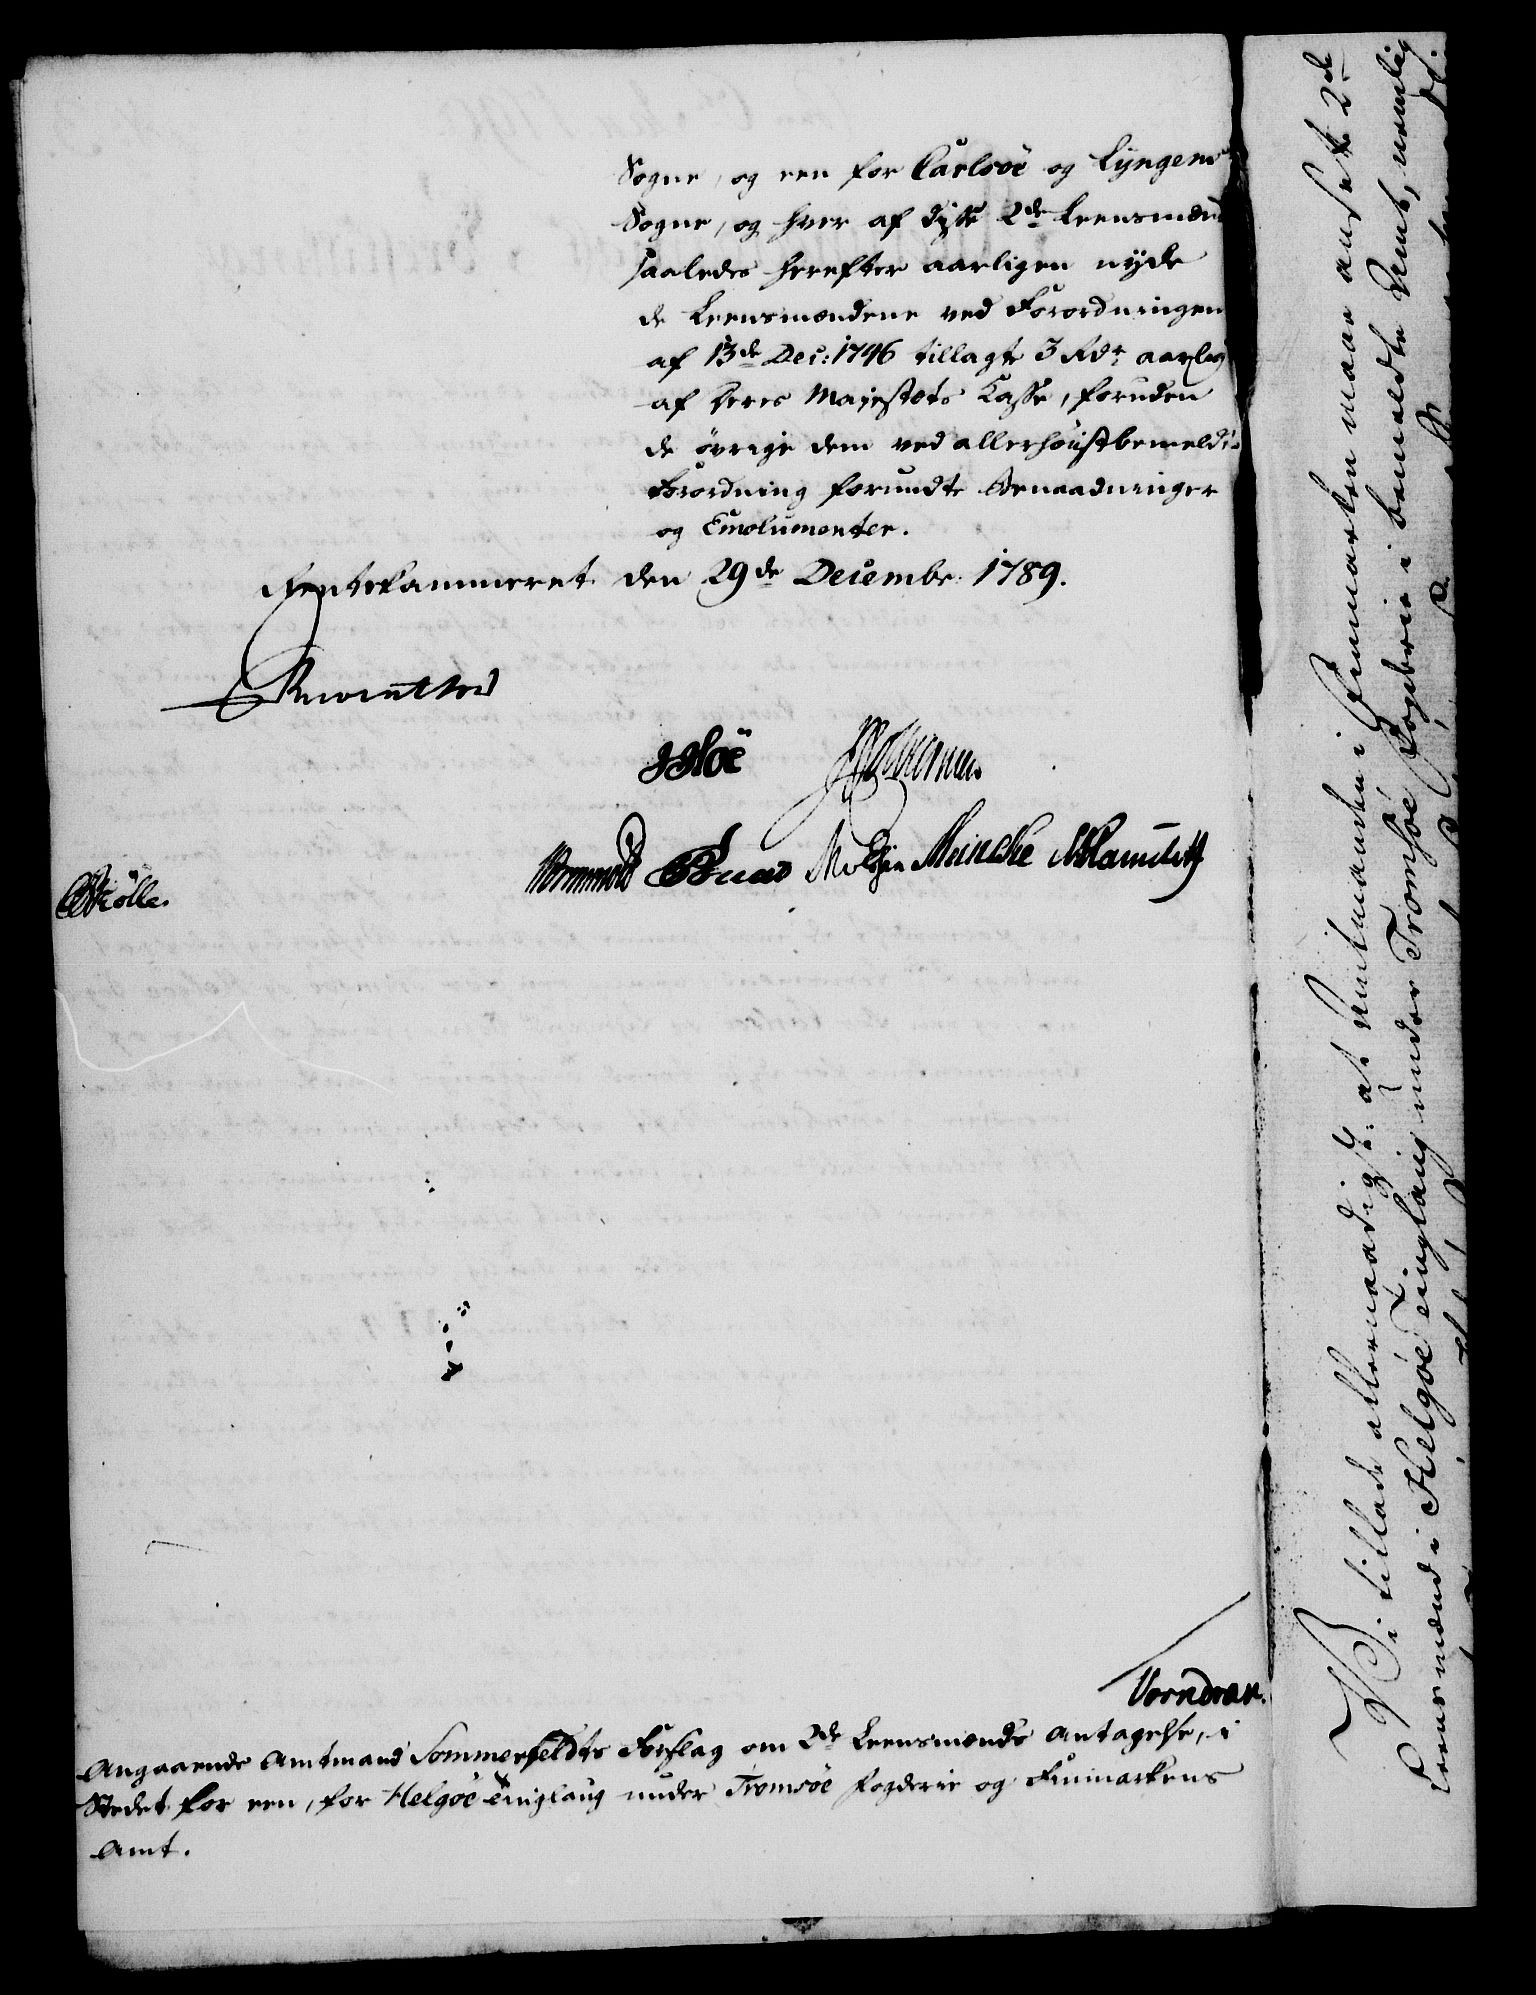 Sogne, og een for Carlsöe og Lyngens
Sogne, og hver af disse 2de Leensmænd
saaledes herefter aarligen nyde
de Leensmændene ved Forordningen
af 13de Dec: 1746 tillagte 3 Rdr aarlig
af Deres Majestæts Casse, foruden
de övrige dem ved allerhöistbemeldte
Forordning forundte Benaadninger
og Emolumenter.
Rentekammeret den 29de Decembr: 1789.
Reventlow
Wormskiold Meincke
Angaaende Amtmand Sommerfeldts Forslag om 2de Leensmænds Antagelse, i
Stedet for een, for Helgöe Tinglaug under Tromsöe Fogderie og Finmarkens
Amt.
Vi tillade allernaadigst: at Amtmanden i Finmarken maae ansætte 2de
Leensmænd i Helgöe Tinglaug under Tromsöe Fogderie i bemeldte Amt, nemlig